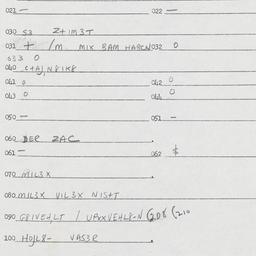 021 — 022 —
030 53 Z+1M3T
031 + /M. MIX BAM HARCN 032 0
033 0
040 C+AJ, N8IK8
041 0 042 0
043 0 044 0
050 — 051 —
060 BER ZAC
061 — 062 $
070 MIL3X
080 MIL3X VIL3X NIS+T
090 G8IVEH,LT / UPXXVEHL8-N
100 HOJL8- VAS3R